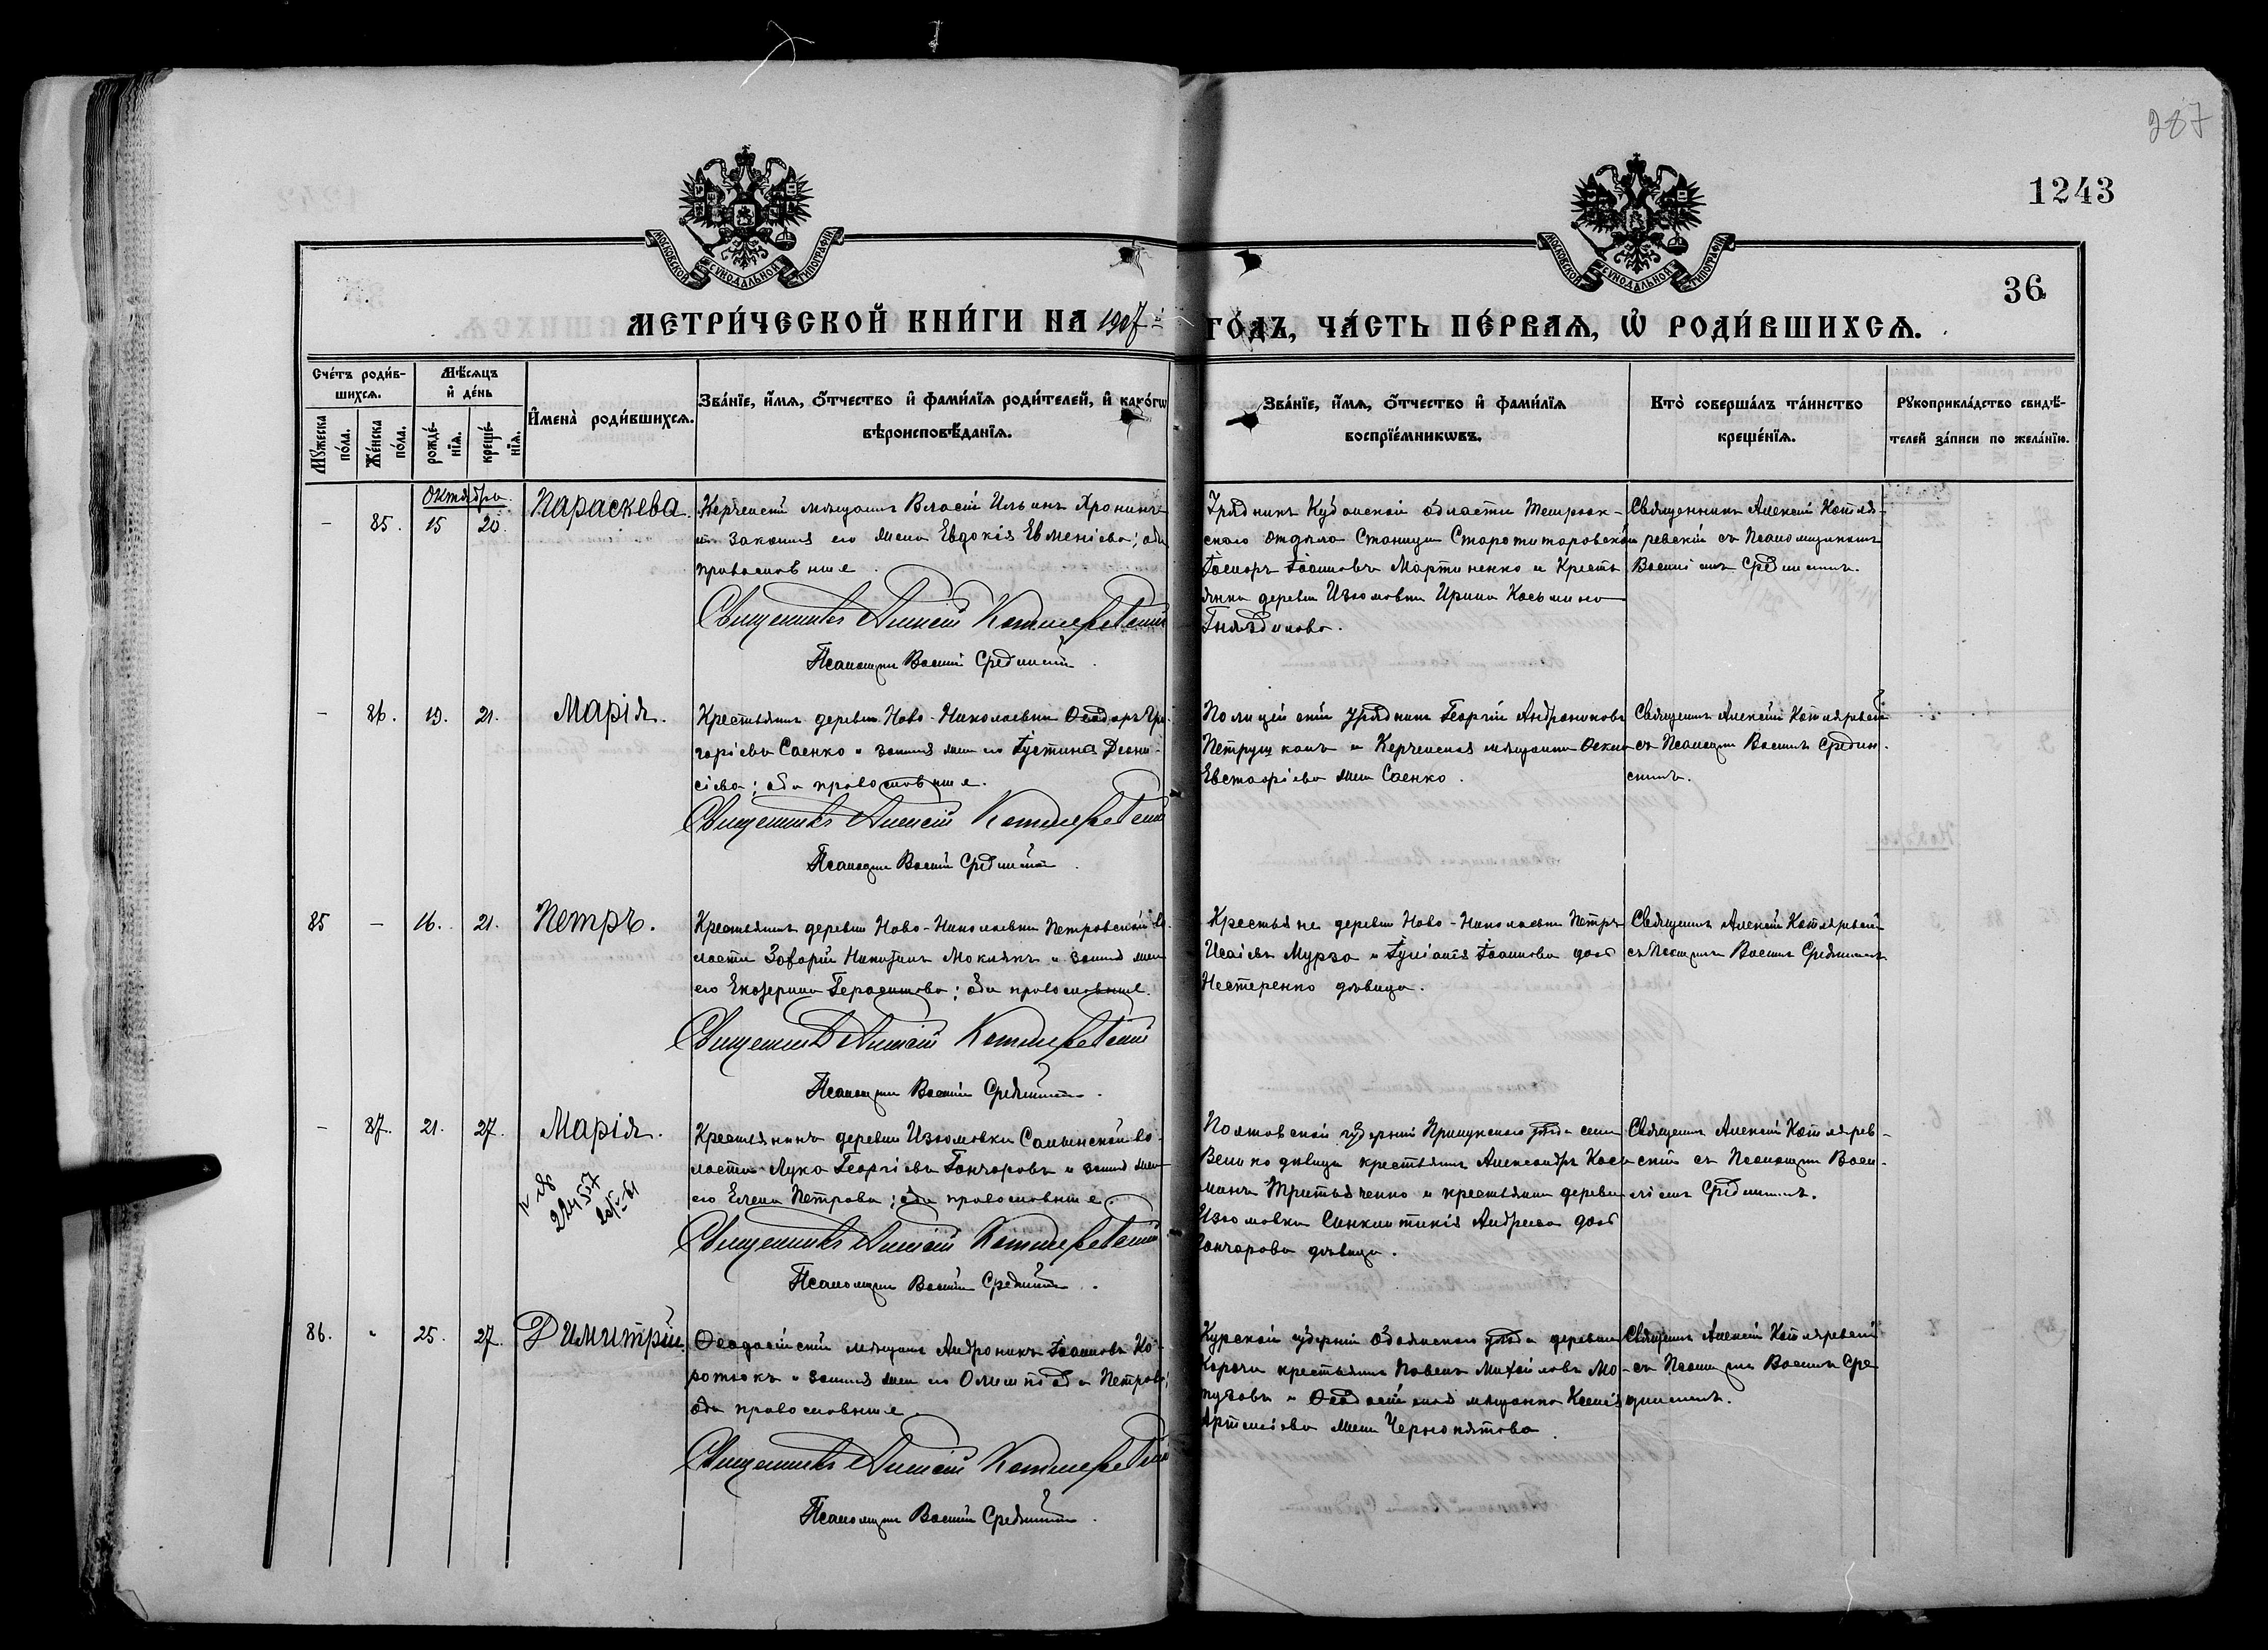 287
1243
36
МОСКОВСКОЙ СѴНОДАЛЬНОЙ ТИПОГРАФІИ
МОСКОВСКОЙ СѴНОДАЛЬНОЙ ТИПОГРАФІИ
МЕТРИ́ЧЕСКОЙ КНИ́ГИ НА 1907 ГО́ДЪ, ЧА́СТЬ ПЕ́РВАѦ, Ѡ҆ РОДИ́ВШИХСѦ.
Сче́тъ роди́в-
шихсѧ.
Мꙋ́жеска по́ла.
Же́нска по́ла.
Мѣ́сѧцъ
и҆ де́нь
рожде́-
нїѧ.
креще́-
нїѧ.
И҆мена̀ роди́вшихсѧ.
Зва́нїе, и҆́мѧ, ѻ҆́тчество и҆ фами́лїѧ роди́телей, и҆ како́гѡ
вѣроисповѣ́данїѧ.
Зва́нїе, и҆́мѧ, ѻ҆́тчество и҆ фами́лїѧ
воспрїе́мникѡвъ.
Кто̀ соверша́лъ та́инство
креще́нїѧ.
Рꙋкоприкла́дство свидѣ́-
телей за́писи по жела́нїю.
Октября.
— 85. 15 20. Параскева.
Керченскій мѣщанинъ Власій Ильинъ
и законная его жена Евдокія Евменіева; оба
православные.
Священникъ Алексій Котляревскій
Псаломщикъ Василій Срединскій.
Урядникъ Кубанской области Темрюк-
скаго отдѣла Станицы Старотитаровской
Іоанновъ Мартиненко и Кресть
янка деревни Изюмовки Ирина Косьмина
Гнѣдикова.
Священникъ Алексій Котля-
ревскій съ Псаломщикомъ
Василіемъ Срединскимъ.
— 86. 19. 21. Марія.
Крестьянинъ деревни Ново-Николаевки Ѳеодоръ Гри-
горіевъ Саенко и законная жена его Іустина Діони-
сіева; оба православные.
Священникъ Алексій Котляревскій
Псаломщикъ Василій Срединскій.
Полицейскій урядникъ Георгій Андрониковъ
и Керченская мѣщанка
Евстафіева жена Саенко.
Священникъ Алексій Котляревскій
съ Псаломщикомъ Василіемъ Средин-
скимъ.
85 — 16. 21. Петръ.
Крестьянинъ деревни Ново-Николаевки Петровской во-
лости Захарій Никитинъ Моклякъ и законная жена
его Екатерина Герасимова; оба православные.
Священникъ Алексій Котляревскій
Псаломщикъ Василій Срединскій.
Крестьяне деревни Ново-Николаевки Петръ
Исаіевъ Мурза и Іуліанія Іоаннова дочь
Нестеренко дѣвица.
Священникъ Алексій Котляревскій
съ Псаломщикомъ Василіемъ Срединскимъ
— 87. 21. 27. Марія.
Крестьянинъ деревни Изюмовки Салынской во-
лости Лука Георгіевъ Гончаровъ и законная жена
его Елена Петрова; оба православные.
Священникъ Алексій Котляревскій
Псаломщикъ Василій Срединскій.
Полтавской губерніи Прилукскаго уѣзда села
крестьянинъ Александръ Кось-
минъ Третьяченко и крестьянка деревни
Изюмовки Синклитикія Андреева дочь
Гончарова дѣвица.
Священникъ Алексій Котлярев-
скій съ Псаломщикомъ Васи-
ліемъ Срединскимъ.
86. „ 25. 27. Димитрій
Ѳеодосійскій мѣщанинъ Андроникъ Іоанновъ Ко-
ротюкъ и законная жена его Олимпіада Петрова;
оба православные.
Священникъ Алексій Котляревскій
Псаломщикъ Василій Срединскій.
Курской губерніи Обоянскаго уѣзда деревни
крестьянинъ Павелъ Михайловъ
и Ѳеодосійская мѣщанка Ксенія
Артеміева жена Чернопятова.
Священникъ Алексій Котляревскій
съ Псаломщикомъ Василіемъ Сре-
динскимъ.